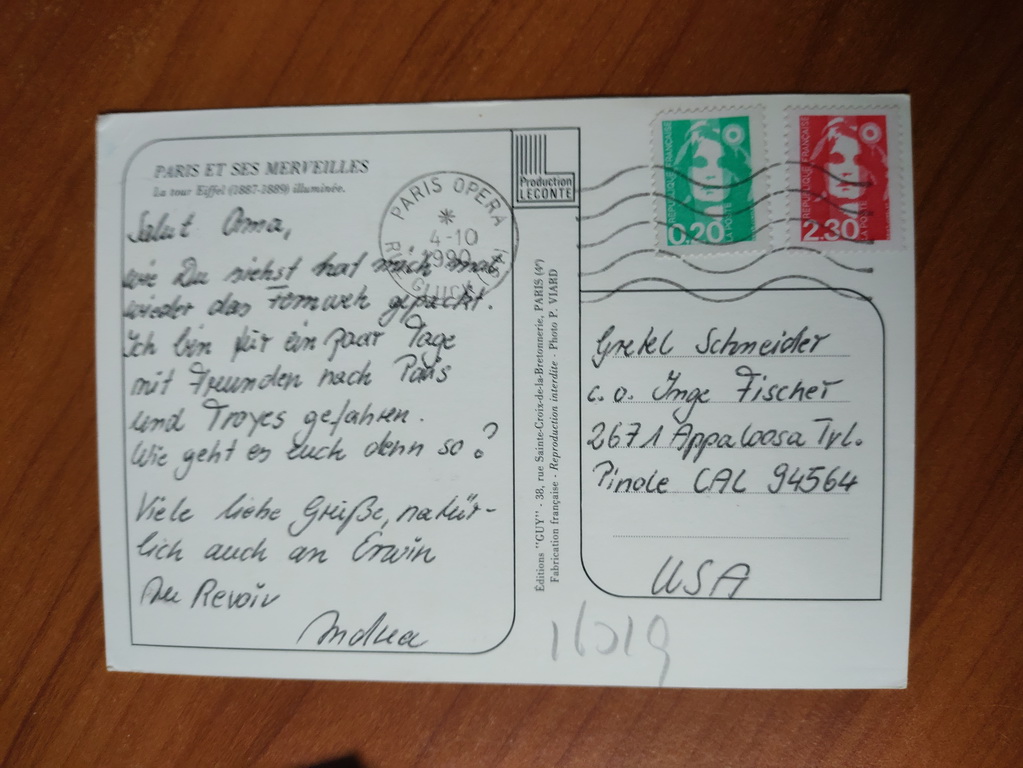 PARIS ET SES MERVEILLES
La tour Eiffel (1887-1889) illuminée.
Salut Oma,
wie Du siehst hat mich mal
wieder das Fernweh gepackt.
Ich bin für ein paar Tage
mit Freunden nach Paris
und Troyes gefahren.
Wie geht es euch denn so?
Viele liebe Grüße, natür-
lich auch an Erwin
Au Revoir
Andrea
PARIS OPERA
4-10
1990
RUE GLUCK
Production
LECONTE
Éditions "GUY" - 38, rue Sainte-Croix-de-la-Bretonnerie, PARIS (4e)
Fabrication française - Reproduction interdite - Photo P. VIARD
REPUBLIQUE FRANÇAISE
LA POSTE
0.20
REPUBLIQUE FRANÇAISE
LA POSTE
2.30
Gretel Schneider
c.o. Inge Fischer
2671 Appaloosa Trl.
Pinole CAL 94564
USA